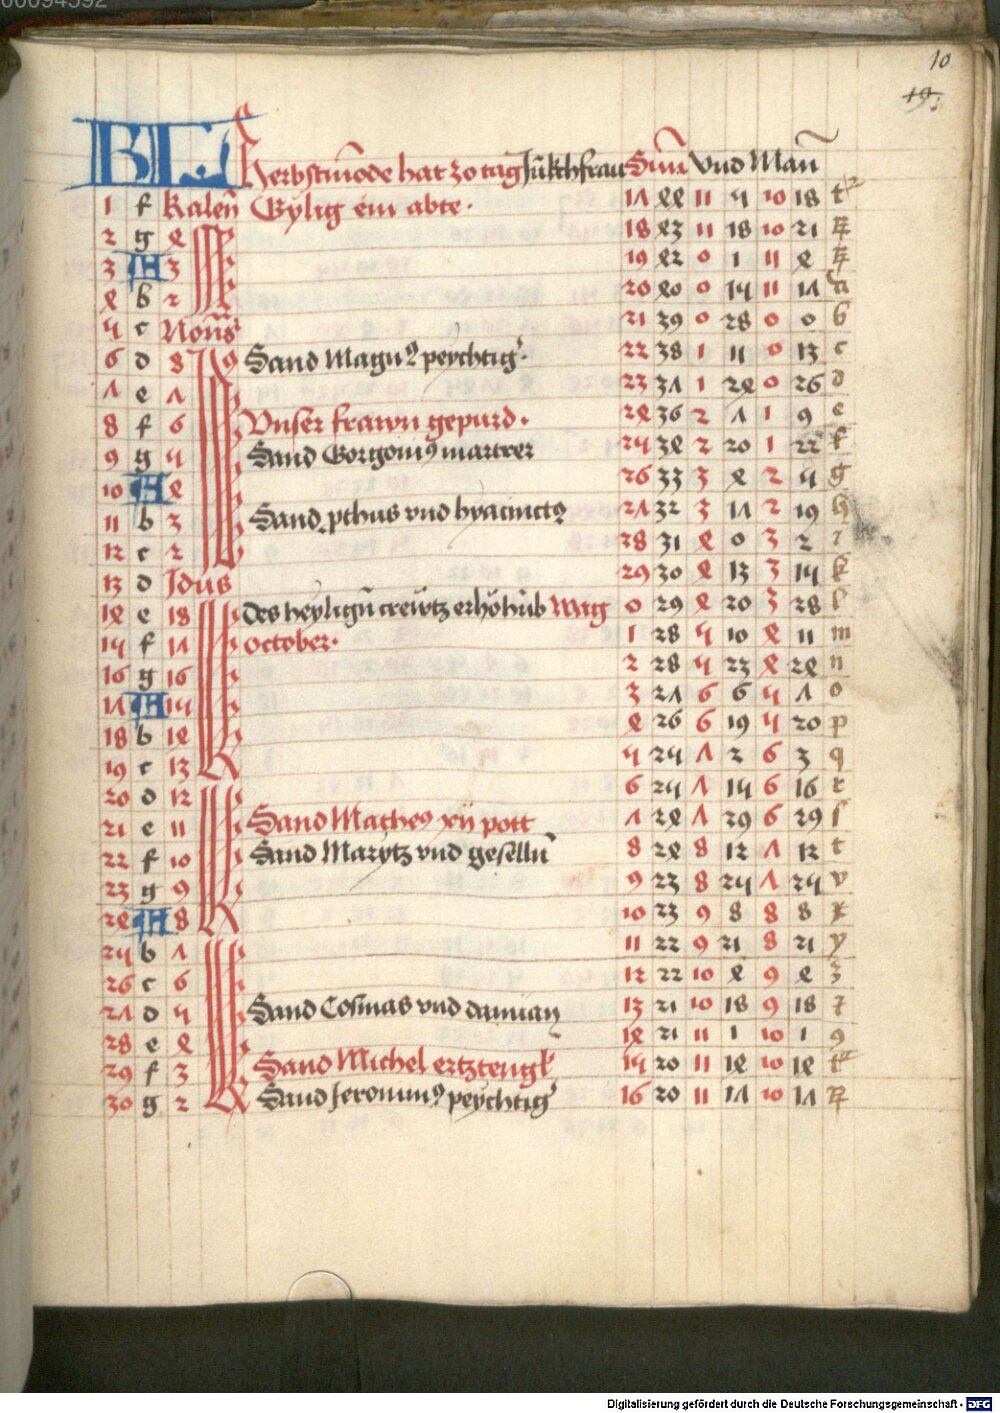 00094592
10
19
KL Herbstmode hat 30 tag Junkchfrau Sunn Vnd Man
1 f Kalen Gylig ein abte · 17 44 11 5 10 18 t
2 g 4 18 43 11 18 10 21
3 A 3 19 42 0 1 11 4
4 b 2 20 40 0 14 11 17 a
5 c Nonas 21 39 0 28 0 0 b
6 d 8 Sand Magnus peychtig · 22 38 1 11 0 13 c
7 e 7 23 37 1 24 0 26 d
8 f 6 Vnser frawn gepurd · 24 36 2 7 1 9 e
9 g 5 Sand Gorgonius martrer 25 34 2 20 1 22 f
10 A 4 26 33 3 4 2 5 g
11 b 3 Sand pthus vnd hyacinctus 27 32 3 17 2 19 h
12 c 2 28 31 4 0 3 2 i
13 d Idus 29 30 4 13 3 15 k
14 e 18 Des heyligen crewtz erhohub Wag 0 29 4 20 3 28 l
15 f 17 October · 1 28 5 10 4 11 m
16 g 16 2 28 5 23 4 24 n
17 A 15 3 27 6 6 5 7 o
18 b 14 4 26 6 19 5 20 p
19 c 13 5 25 7 2 6 3 q
20 d 12 6 25 7 15 6 16 r
21 e 11 Sand Matheus xij pott 7 24 7 29 6 29 s
22 f 10 Sand Marytz vnd geselln 8 24 8 12 7 12 t
23 g 9 9 23 8 25 7 25 v
24 A 8 10 23 9 8 8 8 x
25 b 7 11 22 9 21 8 21 y
26 c 6 12 22 10 4 9 4 z
27 d 5 Sand Cosmas vnd damian 13 21 10 18 9 18 7
28 e 4 14 21 11 1 10 1 9
29 f 3 Sand Michel ertztengl 15 20 11 14 10 14 t
30 g 2 Sand Jeronimus peychtig 16 20 11 17 10 17
Digitalisierung gefördert durch die Deutsche Forschungsgemeinschaft - DFG